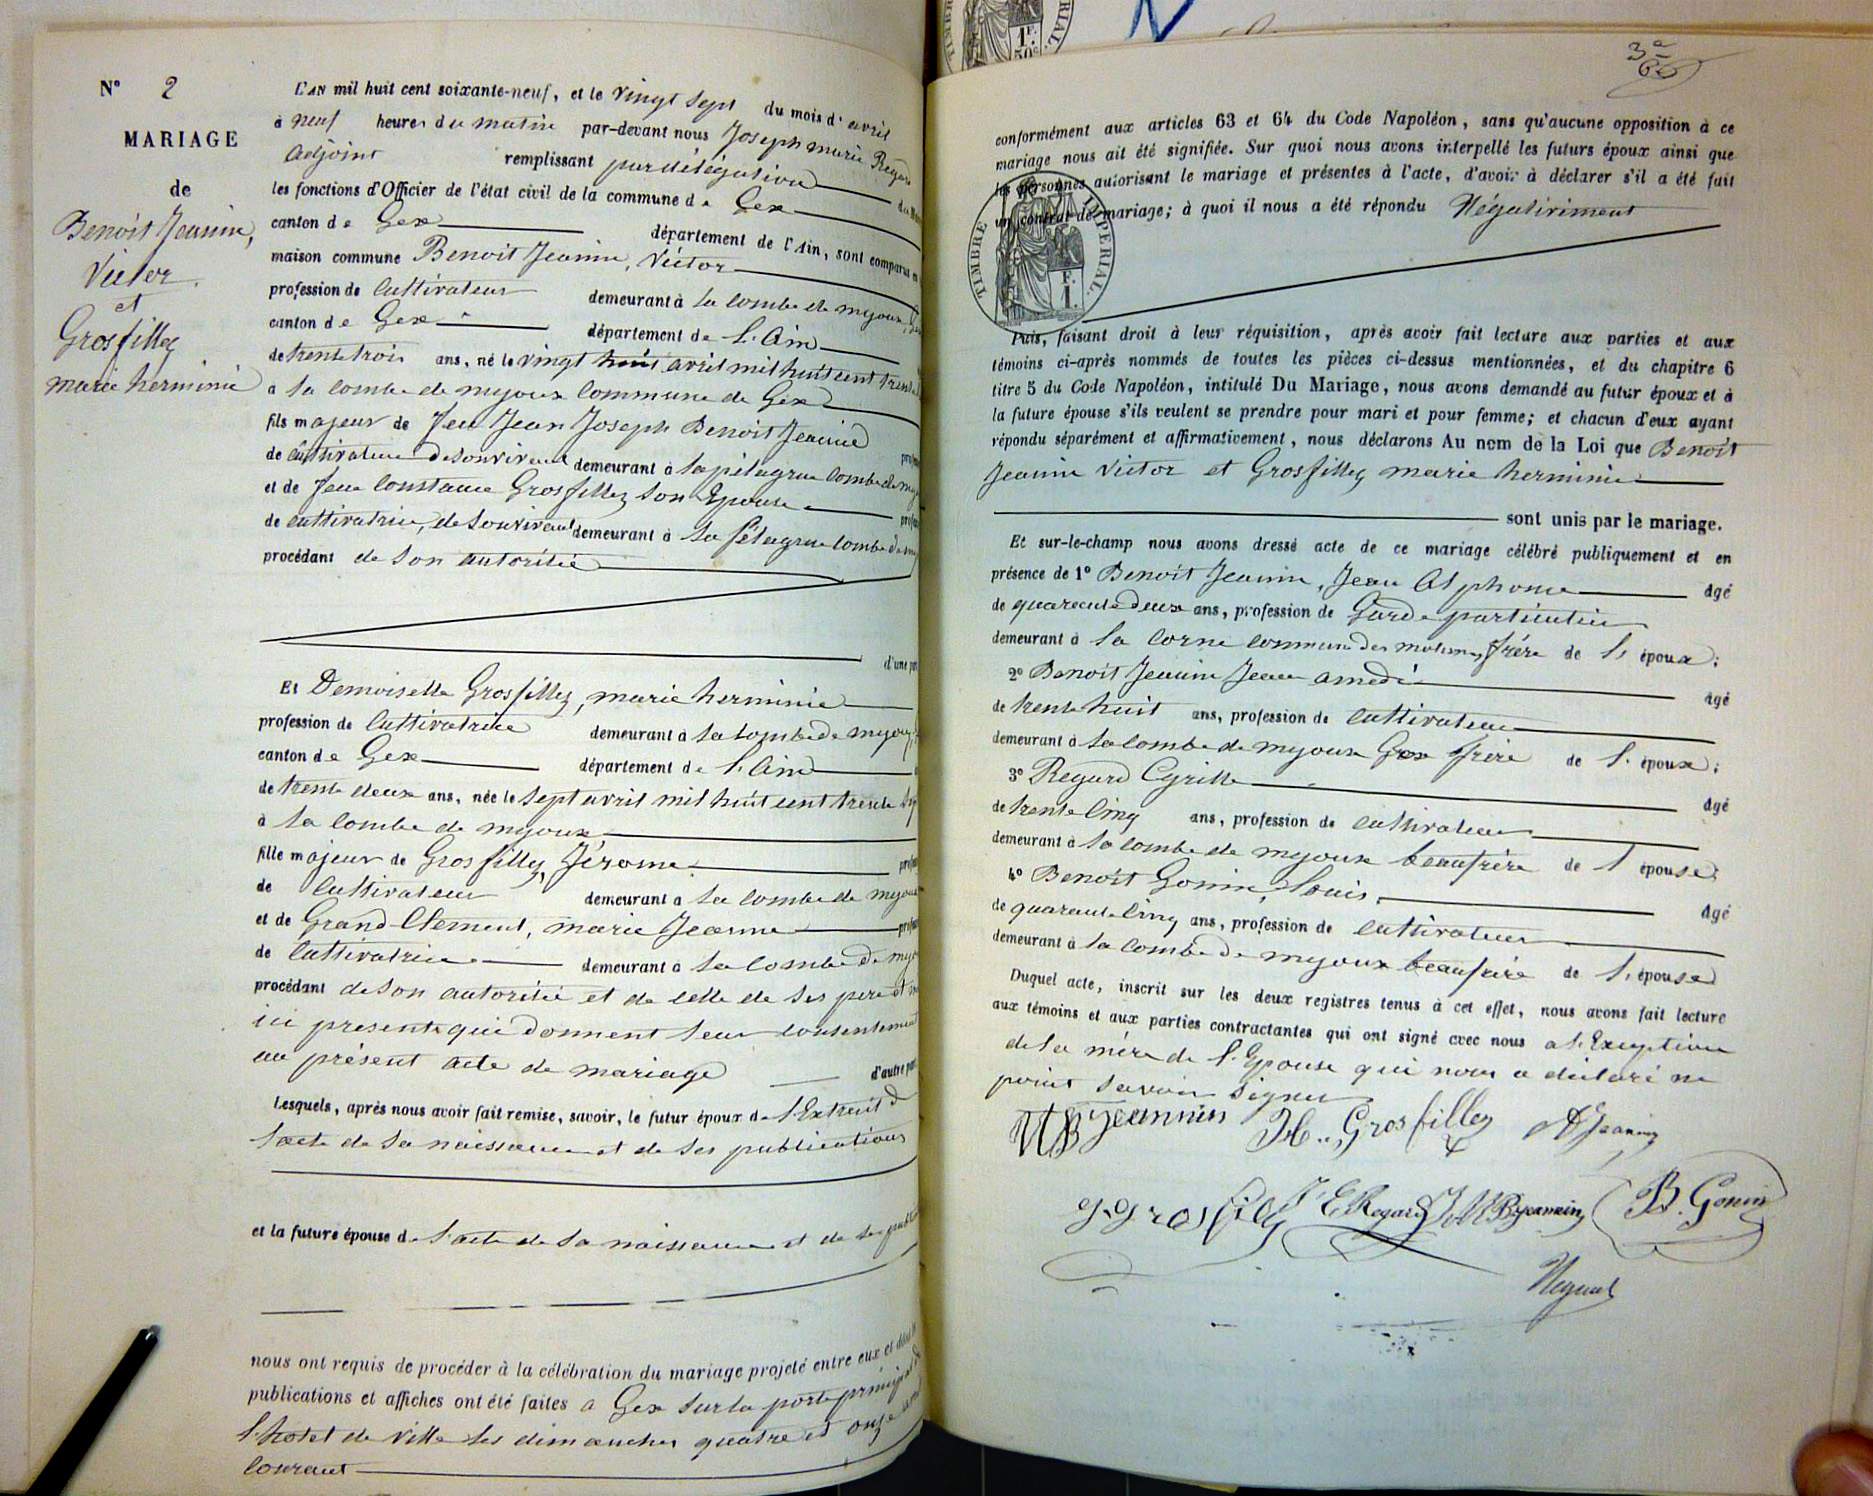 N° 2
MARIAGE
de
Benoit Jeannin,
Victor.
et
Grosfilley
marie herminie
L'AN mil huit cent soixante-neuf, et le vingt sept du mois d'avril
à neuf heures du matin par-devant nous Joseph marie Regard
adjoint remplissant par délégation du
les fonctions d'Officier de l'état civil de la commune de Gex
canton de Gex département de l'Ain, sont comparus en
maison commune Benoit Jeannin, Victor
profession de Cultivateur demeurant à la combe de mijoux,
canton de Gex département de l'Ain
de trente trois ans, né le vingt huit avril mil huit cent trente
à la combe de mijoux commune de Gex
fils majeur de feu Jean Joseph Benoit Jeannin
de cultivateur de son vivant demeurant à la pélagrue combe de
et de feue Constance Grosfilley son Epouse
de cultivatrice, de son vivant demeurant à la pélagrue combe de
procédant de son autorité
d'une part
Et Demoiselle Grosfilley, marie herminie
profession de Cultivatrice demeurant à la combe de mijoux,
canton de Gex département de l'Ain
de trente deux ans, née le sept avril mil huit cent trente sept
à la combe de mijoux
fille majeur de Grosfilley, Jérome
de Cultivateur demeurant à la combe de mijoux
et de Grand-Clement, marie Jeanne
de Cultivatrice demeurant à la combe de
procédant de son autorité et de celle de ses pere et
ici présents qui donnent leur consentement
au présent acte de mariage d'autre part
Lesquels, après nous avoir fait remise, savoir, le futur époux de l'Extrait de
l'acte de sa naissance et de ses publications
et la future épouse de l'acte de sa naissance et de ses
nous ont requis de procéder à la célébration du mariage projeté entre eux et
publications et affiches ont été faites à Gex sur la porte principale de
l'hotel de ville les dimanches quatre et onze
courant
TIMBRE IMPERIAL
1F.
50c
3e
conformément aux articles 63 et 64 du Code Napoléon, sans qu'aucune opposition à ce
mariage nous ait été signifiée. Sur quoi nous avons interpellé les futurs époux ainsi que
les personnes autorisant le mariage et présentes à l'acte, d'avoir à déclarer s'il a été fait
un contrat de mariage; à quoi il nous a été répondu Négativement
TIMBRE IMPERIAL.
F.
1.
Puis, faisant droit à leur réquisition, après avoir fait lecture aux parties et aux
témoins ci-après nommés de toutes les pièces ci-dessus mentionnées, et du chapitre 6
titre 5 du Code Napoléon, intitulé Du Mariage, nous avons demandé au futur époux et à
la future épouse s'ils veulent se prendre pour mari et pour femme; et chacun d'eux ayant
répondu séparément et affirmativement, nous déclarons Au nom de la Loi que Benoit
Jeannin Victor et Grosfilley marie herminie
sont unis par le mariage.
Et sur-le-champ nous avons dressé acte de ce mariage célébré publiquement et en
présence de 1° Benoit Jeannin, Jean Alphonse âgé
de quarante deux ans, profession de Garde particulier
demeurant à la Corne commune des molunes frère de l'époux;
2° Benoit Jeannin Jean amedé âgé
de trente huit ans, profession de cultivateur
demeurant à la combe de mijoux Gex frère de l'époux;
3° Regard Cyrille âgé
de trente cinq ans, profession de cultivateur
demeurant à la combe de mijoux beaufrère de l'épouse;
4° Benoit Gonin, Louis, âgé
de quarante cinq ans, profession de cultivateur
demeurant à la combe de mijoux beaufrère de l'épouse
Duquel acte, inscrit sur les deux registres tenus à cet effet, nous avons fait lecture
aux témoins et aux parties contractantes qui ont signé avec nous à l'Exception
de la mère de l'Epouse qui nous a déclaré ne
point savoir signer
VBjeannin H.. Grosfilley AJeannin
J. Grosfilley C Regard JABjeannin B. Gonin
Regard